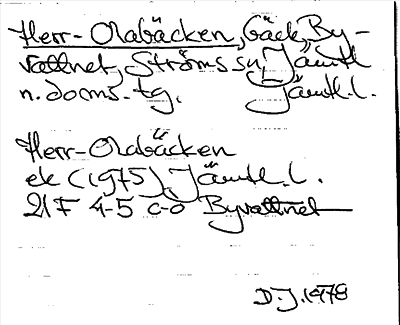 Herr-Olabäcken, bäck, By-
vattnet, Ströms sn, Jämtl
n. doms. tg. Jämtl. l.
Herr-Olabäcken
ek (1975), Jämtl. l.
21F 4-5 c-d Byvattnet
D. J. 1978